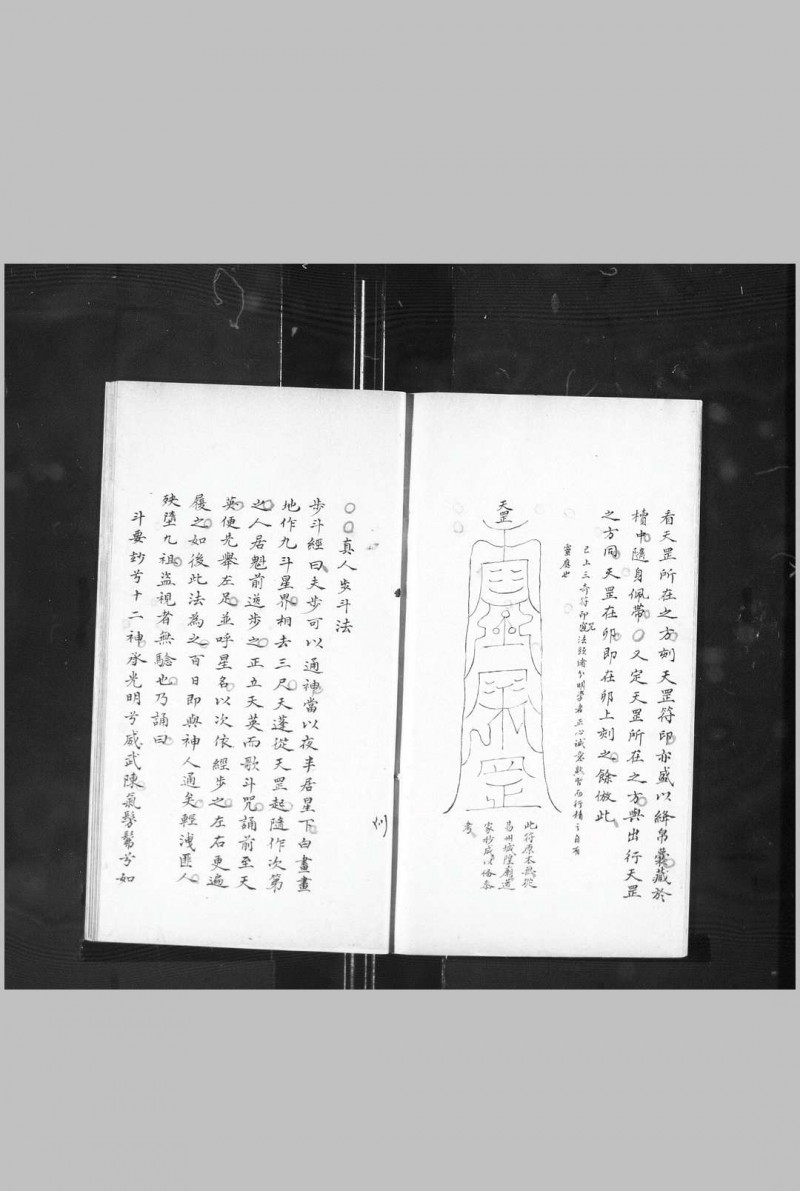 看天罡所在之方刻天罡符印亦盛以絳帛囊藏於
櫝中隨身佩帶○又定天罡所在之方與出行天罡
之方同天罡在卯即在卯上刻之餘倣此
已上三奇符印咒法頭緒分明學者正心誠意熟習而行精之自有
靈應也
天罡
此符原本無從
昌州城隍廟道
家抄盛以俻叅
考
○○真人步斗法
步斗經曰夫步可以通神當以夜半居星下白畫畫
地作九斗星界相去三尺天蓬從天罡起隨作次第
之人居魁前逆步之正立天英而歌斗咒誦前至天
英便先舉左足並呼星名以次依經步之左右更遍
履之如後此法為之百日即與神人通矣輕洩匪人
殃墮九祖盜視者無驗也乃誦曰
斗要妙兮十二神承光明兮威武陳氣髣髴兮如